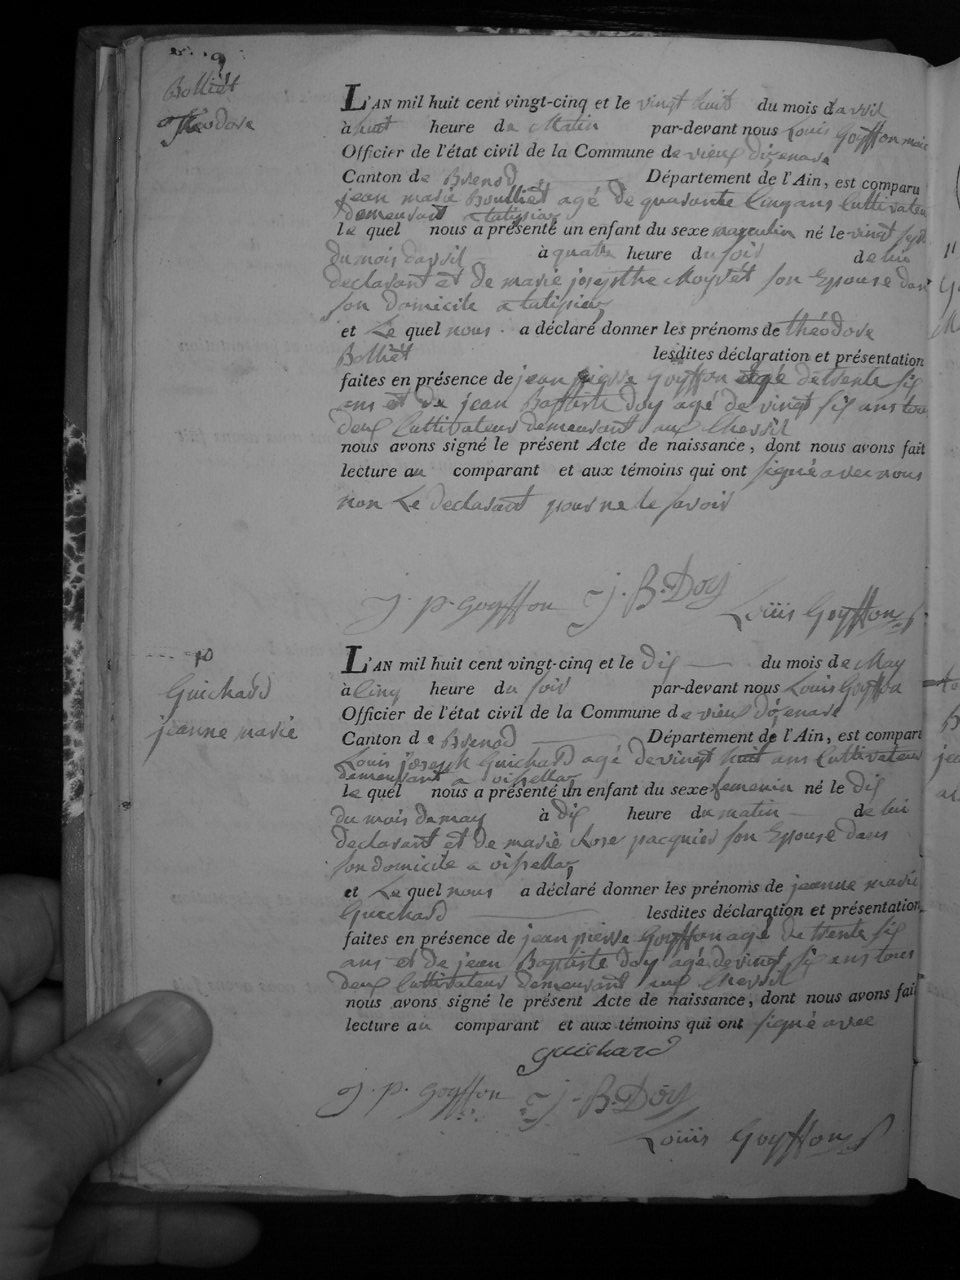 9
Bolliet
théodore
L'AN mil huit cent vingt-cinq et le vingt huit du mois d'avril
à huit heure du Matin par-devant nous Louis Goyffon maire
Officier de l'état civil de la Commune de vieux dizenave
Canton de Brenod Département de l'Ain, est comparu
jean marie Boulliet agé de quarante cinq ans Cultivateur
demeurant a
le quel nous a présenté un enfant du sexe masculin né le vingt sept
du mois d'avril à quatre heure du soir de lui
declarant et de marie josephthe Moyret son Epouse dans
son domicile a
et Le quel nous a déclaré donner les prénoms de théodore
Bolliet lesdites déclaration et présentation
faites en présence de jean pierre Goyffon agé de trente six
ans et de jean Baptiste Doy agé de vingt six ans tous
deux Cultivateurs demeurant aux
nous avons signé le présent Acte de naissance, dont nous avons fait
lecture au comparant et aux témoins qui ont signé avec nous
non Le declarant pour ne le savoir
J. P. Goyffon J. B. Doy
Loüis Goyffon
10
Guichard
jeanne marie
L'AN mil huit cent vingt-cinq et le dix du mois de May
à cinq heure du soir par-devant nous Louis Goyffon
Officier de l'état civil de la Commune de vieux dizenave
Canton de Brenod Département de l'Ain, est comparu
Louis joseph Guichard agé de vingt huit ans Cultivateur
demeurant a
le quel nous a présenté un enfant du sexe femenin né le dix
du mois de may à dix heure du matin de lui
declarant et de marie Rose jacquier son Epouse dans
son domicile a
et Le quel nous a déclaré donner les prénoms de jeanne marie
Guichard lesdites déclaration et présentation
faites en présence de jean pierre Goyffon agé de trente six
ans et de jean Baptiste Doy agé de vingt six ans tous
deux Cultivateurs demeurant aux
nous avons signé le présent Acte de naissance, dont nous avons fait
lecture au comparant et aux témoins qui ont signé avec
guichard
J. P. Goyffon J. B. Doy
Loüis Goyffon